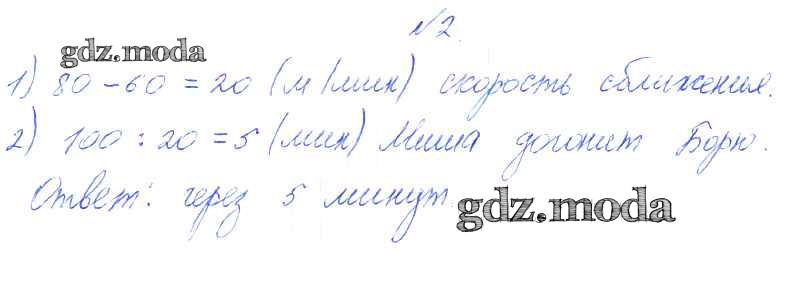 №2.
gdz.moda
1) 80 - 60 = 20 (м/мин) скорость сближения.
2) 100 : 20 = 5 (мин) Миша догонит Борю.
Ответ: через 5 минут.
gdz.moda